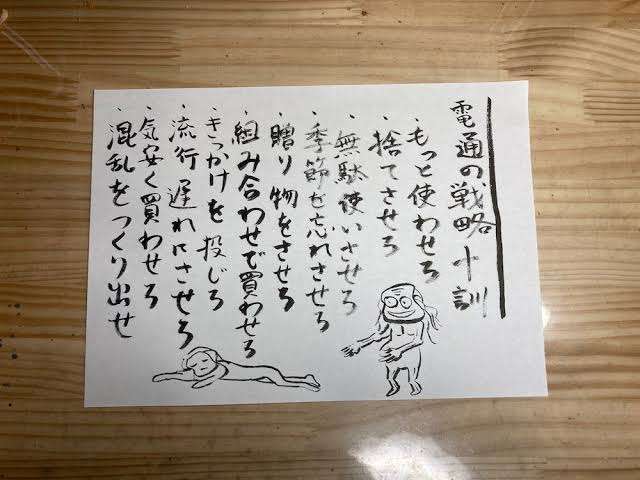 電通の戦略十訓
・もっと使わせろ
・捨てさせろ
・無駄使いさせろ
・季節を忘れさせろ
・贈り物をさせろ
・組み合わせで買わせろ
・きっかけを投じろ
・流行遅れにさせろ
・気安く買わせろ
・混乱をつくり出せ